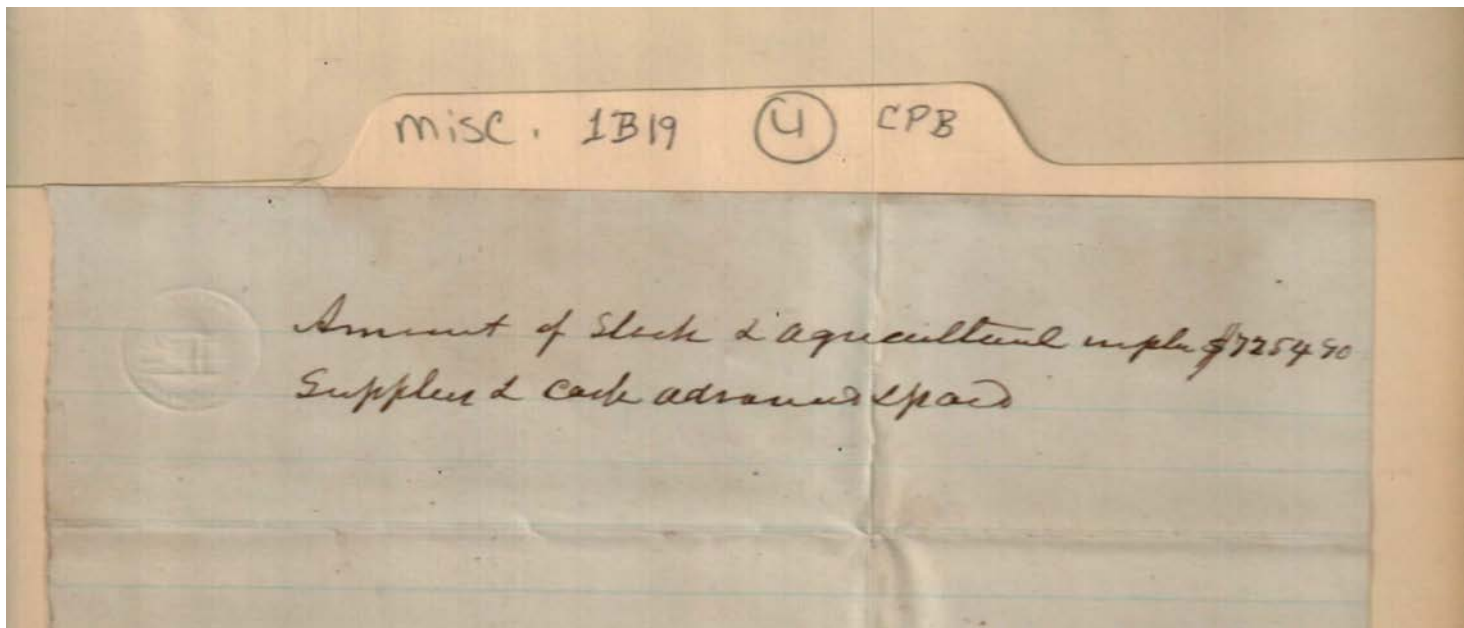 misc. 1B19 4 CPB
Amount of Stock & agricultural impls $7254 90
Supplies & Cash advanced & paid